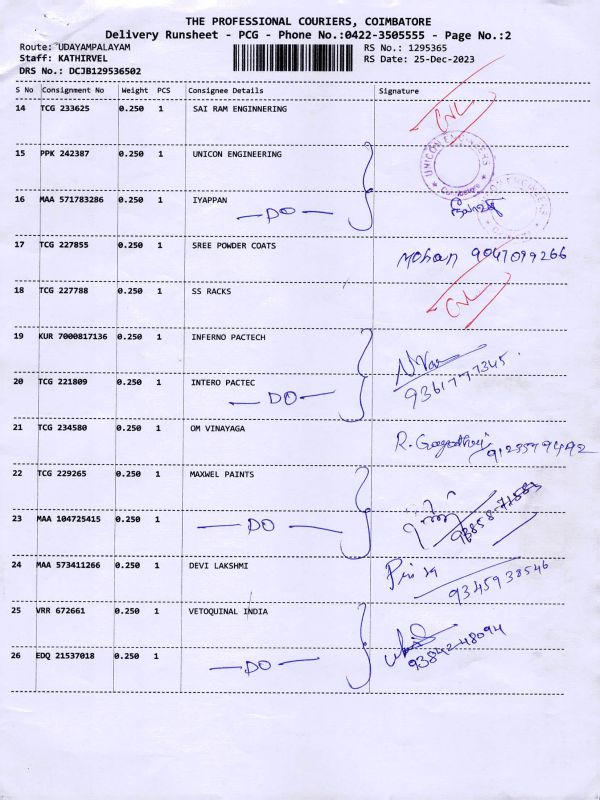 THE PROFESSIONAL COURIERS, COIMBATORE
Delivery Runsheet - PCG - Phone No.:0422-3505555 - Page No.:2
Route: UDAYAMPALAYAM
RS No.: 1295365
Staff: KATHIRVEL
RS Date: 25-Dec-2023
DRS No.: DCJB129536502
S No Consignment No Weight PCS Consignee Details Signature
14 TCG 233625 0.250 1 SAI RAM ENGINNERING
15 PPK 242387 0.250 1 UNICON ENGINEERING
16 MAA 571783286 0.250 1 IYAPPAN
DO
17 TCG 227855 0.250 1 SREE POWDER COATS Mohan 9047099266
18 TCG 227788 0.250 1 SS RACKS
19 KUR 7000817136 0.250 1 INFERNO PACTECH
9361777345
20 TCG 221809 0.250 1 INTERO PACTEC
DO
21 TCG 234580 0.250 1 OM VINAYAGA R. Gayathri
22 TCG 229265 0.250 1 MAXWEL PAINTS
23 MAA 104725415 0.250 1 DO
24 MAA 573411266 0.250 1 DEVI LAKSHMI
9345938546
25 VRR 672661 0.250 1 VETOQUINAL INDIA
93842-48094
26 EDQ 21537018 0.250 1 DO